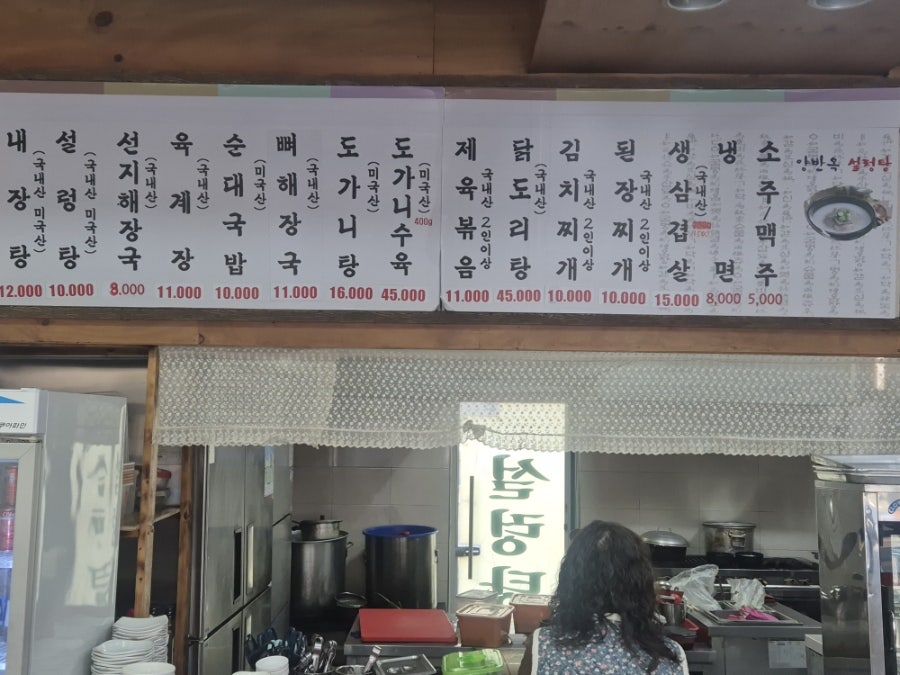 내장탕 (국내산 미국산) 12.000
설렁탕 (국내산 미국산) 10.000
선지해장국 (국내산) 8.000
육계장 (국내산) 11.000
순대국밥 (미국산) 10.000
뼈해장국 (국내산) 11.000
도가니탕 (미국산) 16.000
도가니수육 (미국산) 400g 45.000
제육볶음 국내산 2인이상 11.000
닭도리탕 (국내산) 45.000
김치찌개 국내산 2인이상 10.000
된장찌개 국내산 2인이상 10.000
생삼겹살 (국내산) 15.000
냉면 8,000
소주/맥주 5,000
양반옥 설렁탕
설렁탕